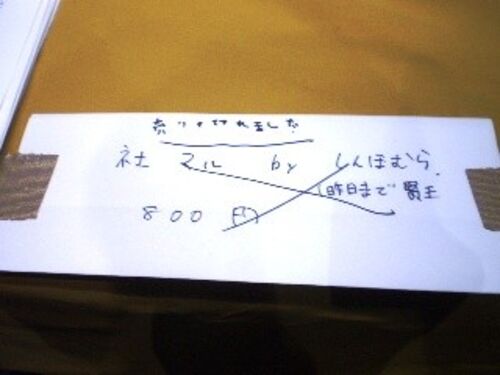 売り切れました
社マル by しんほむら。
(昨日まで賢王
800円